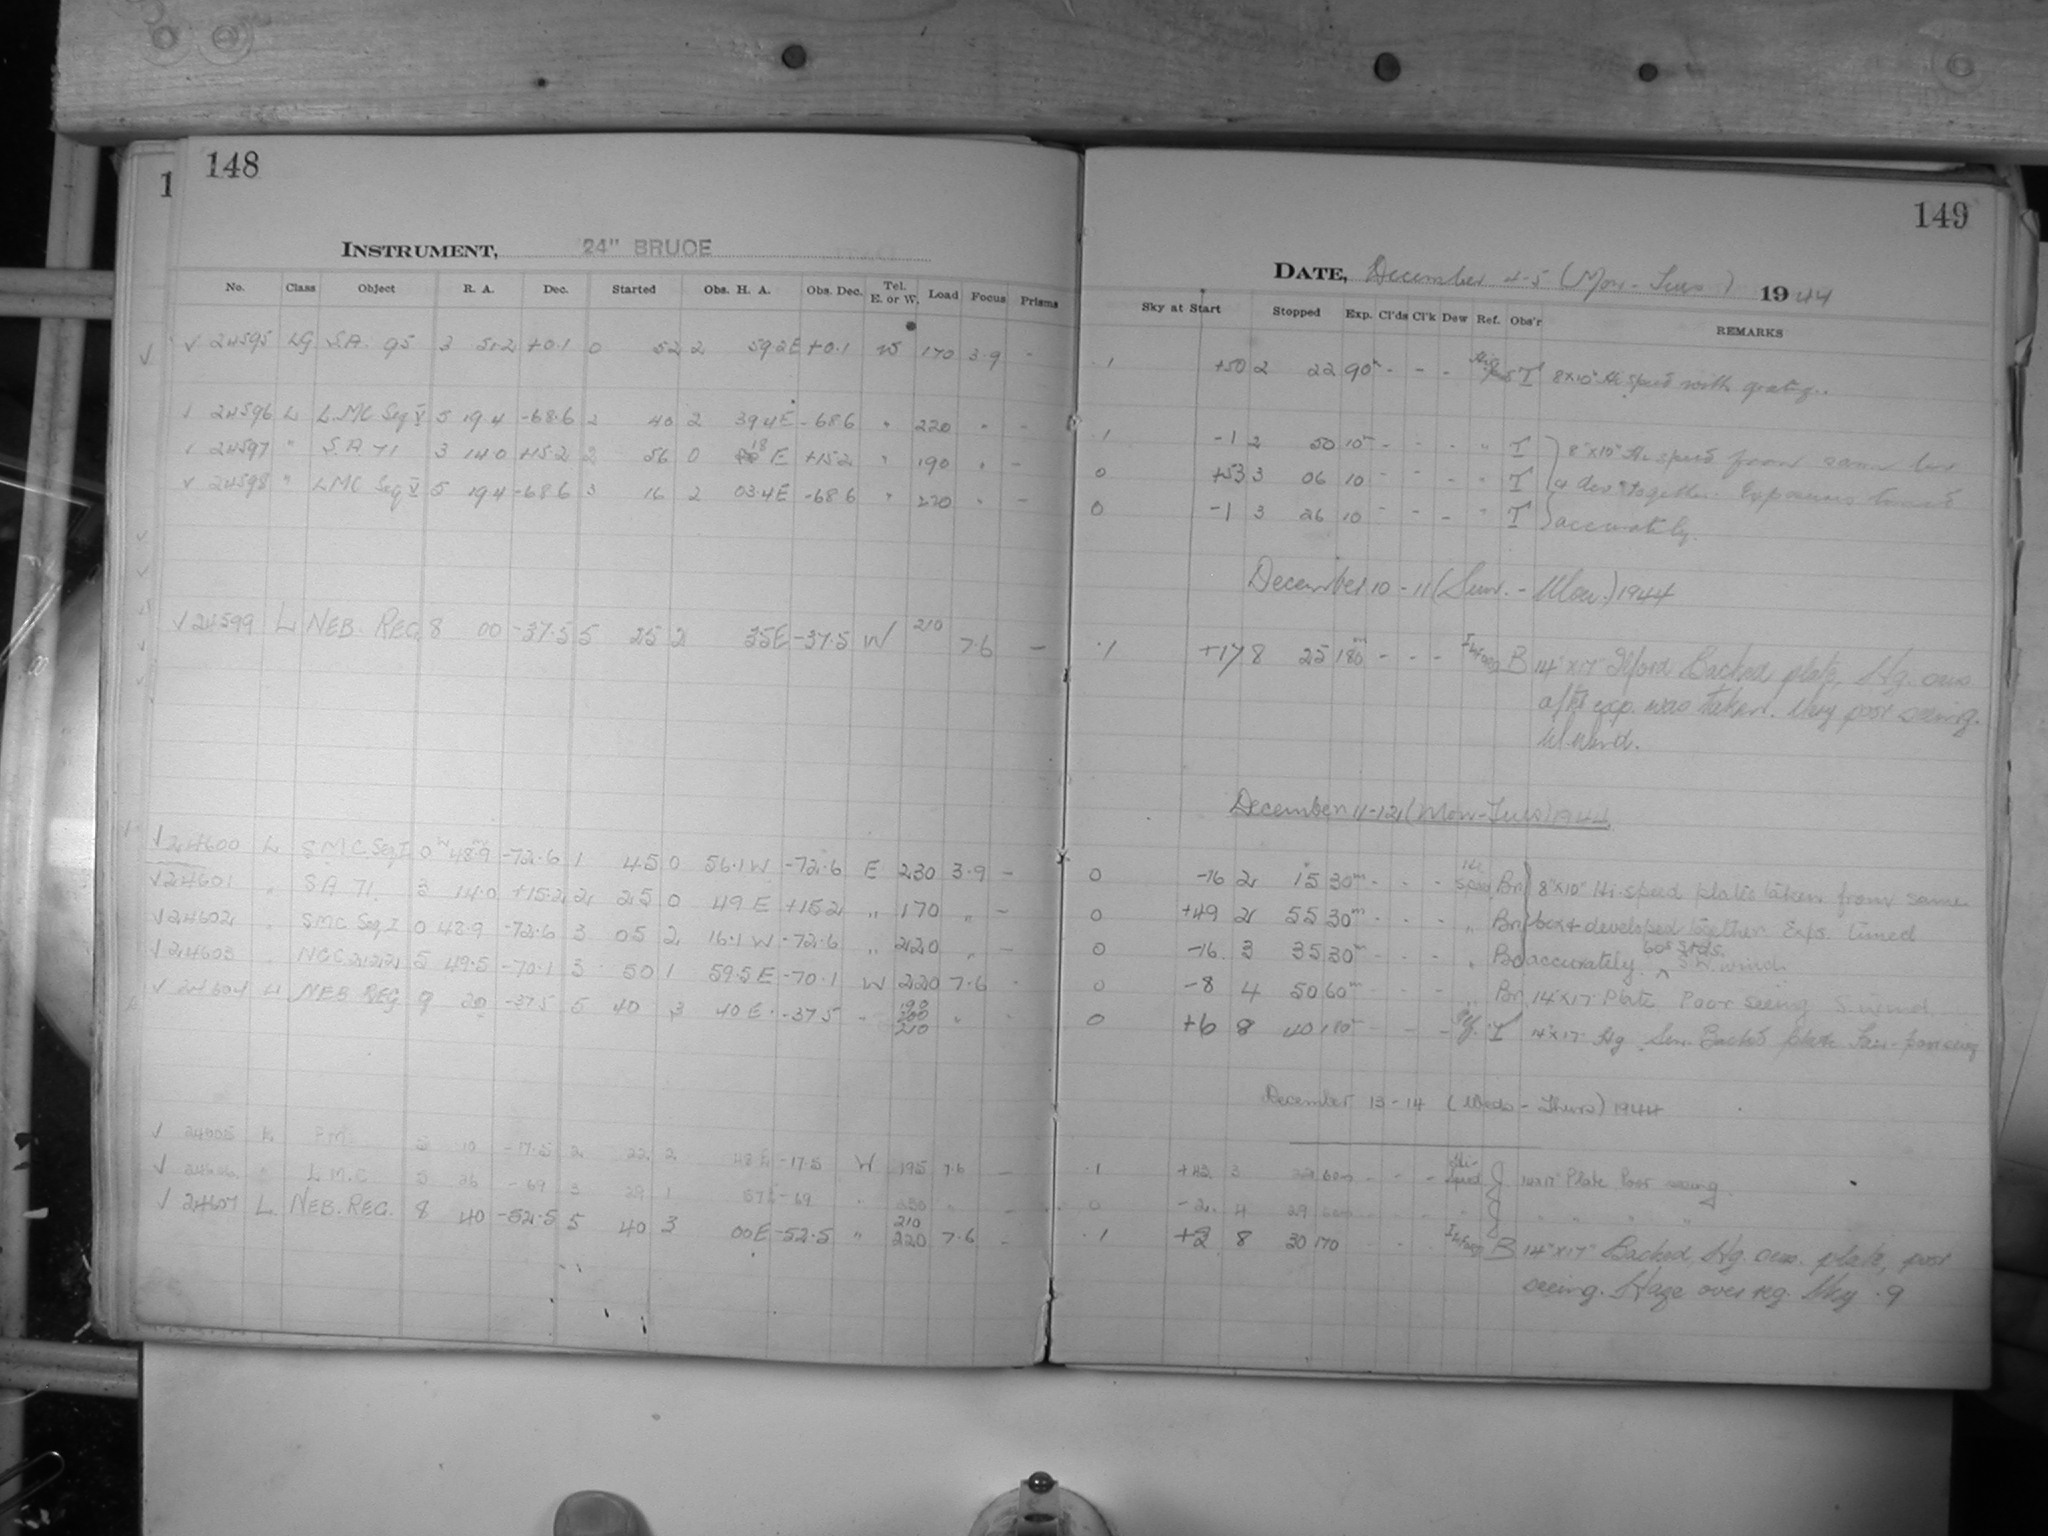 148
1
INSTRUMENT, 24" BRUCE
No. Class Object R. A. Dec. Started Obs. H. A. Obs. Dec. Tel. E. or W. Load Focus Prisms
√ 24595 LG S.A. 95 3 51.2 +0.1 0 52 2 592E +0.1 W 170 3.9 -
√ 24596 L L.MC Seq V 5 19.4 -68.6 2 40 2 39.4E -68.6 " 220 " -
√ 24597 " S.A 71 3 14.0 +15.2 2 56 0 18 E +15.2 " 190 " -
√ 24598 " LMC Seq V 5 19.4 -68.6 3 16 2 03.4E -68.6 " 220 " -
√ 24599 L NEB. REG. 8 00 -37.5 5 25 2 35E -37.5 W 210 7.6 -
√ 24600 L S.M.C. Seq I 0 48.9 -72.6 1 45 0 56.1W -72.6 E 230 3.9 -
√ 24601 " SA 71 3 14.0 +15.2 2 25 0 49 E +15.2 " 170 " -
√ 24602 " SMC Seq I 0 48.9 -72.6 3 05 2 16.1W -72.6 " 220 " -
√ 24603 " NGC 2122 5 49.5 -70.1 3 50 1 59.5E -70.1 W 220 7.6
√ 24604 L NEB REG 9 20 -37.5 5 40 3 40E -37.5 " 190 200 210 "
√ 24605 L 5 10 -17.5 2 22 2 48E -17.5 W 195 7.6 -
√ 24606 " L.M.C 5 26 -69 3 29 1 57E -69 " " -
√ 24607 L NEB. REG. 8 40 -52.5 5 40 3 00E -52.5 " 210 220 7.6 -
149
DATE, December 4-5 (Mon - Tues) 1944
Sky at Start Stopped Exp. Cl'ds Cl'k Dew Ref. Obs'r REMARKS
.1 +50 2 22 90m - - - T 8x10" Hi speed with grating.
.1 -1 2 50 10m - - - " T 8"x10" Hi speed from same box
0 +53 3 06 10 - - - " T & dev together. Exposures timed
0 -1 3 26 10 - - - " T accurately.
December 10-11 (Sun. - Mon.) 1944
.1 +17 8 25 180m - - - B 14"x17" Ilford Backed plate, Hg. cens
after exp. was taken. Very poor seeing.
W. wind.
December 11-12 (Mon-Tues) 1944
0 -16 2 15 30m - - - Hi Speed Bn 8"x10" Hi-speed plates taken from same
0 +49 2 55 30m - - - " Bn box & developed together. Exps. timed
0 -16 3 35 30m - - - " Bn accurately. 60s stds. S.W. wind.
0 -8 4 50 60m - - - " Bn 14"x17" Plate Poor seeing S. wind
0 +6 8 40 180m - - - T 14"x17" Hg Sen. Backed plate Fair - poor seeing
December 13-14 (Weds - Thurs) 1944
.1 +42 3 22 60m - - - Hi-speed 14x17" Plate Poor seeing.
0 -2 4 29 60m - - - " " " " "
.1 +2 8 30 170 - - B 14"x17" Backed, Hg. cens. plate, poor
seeing. Haze over reg. Sky .9